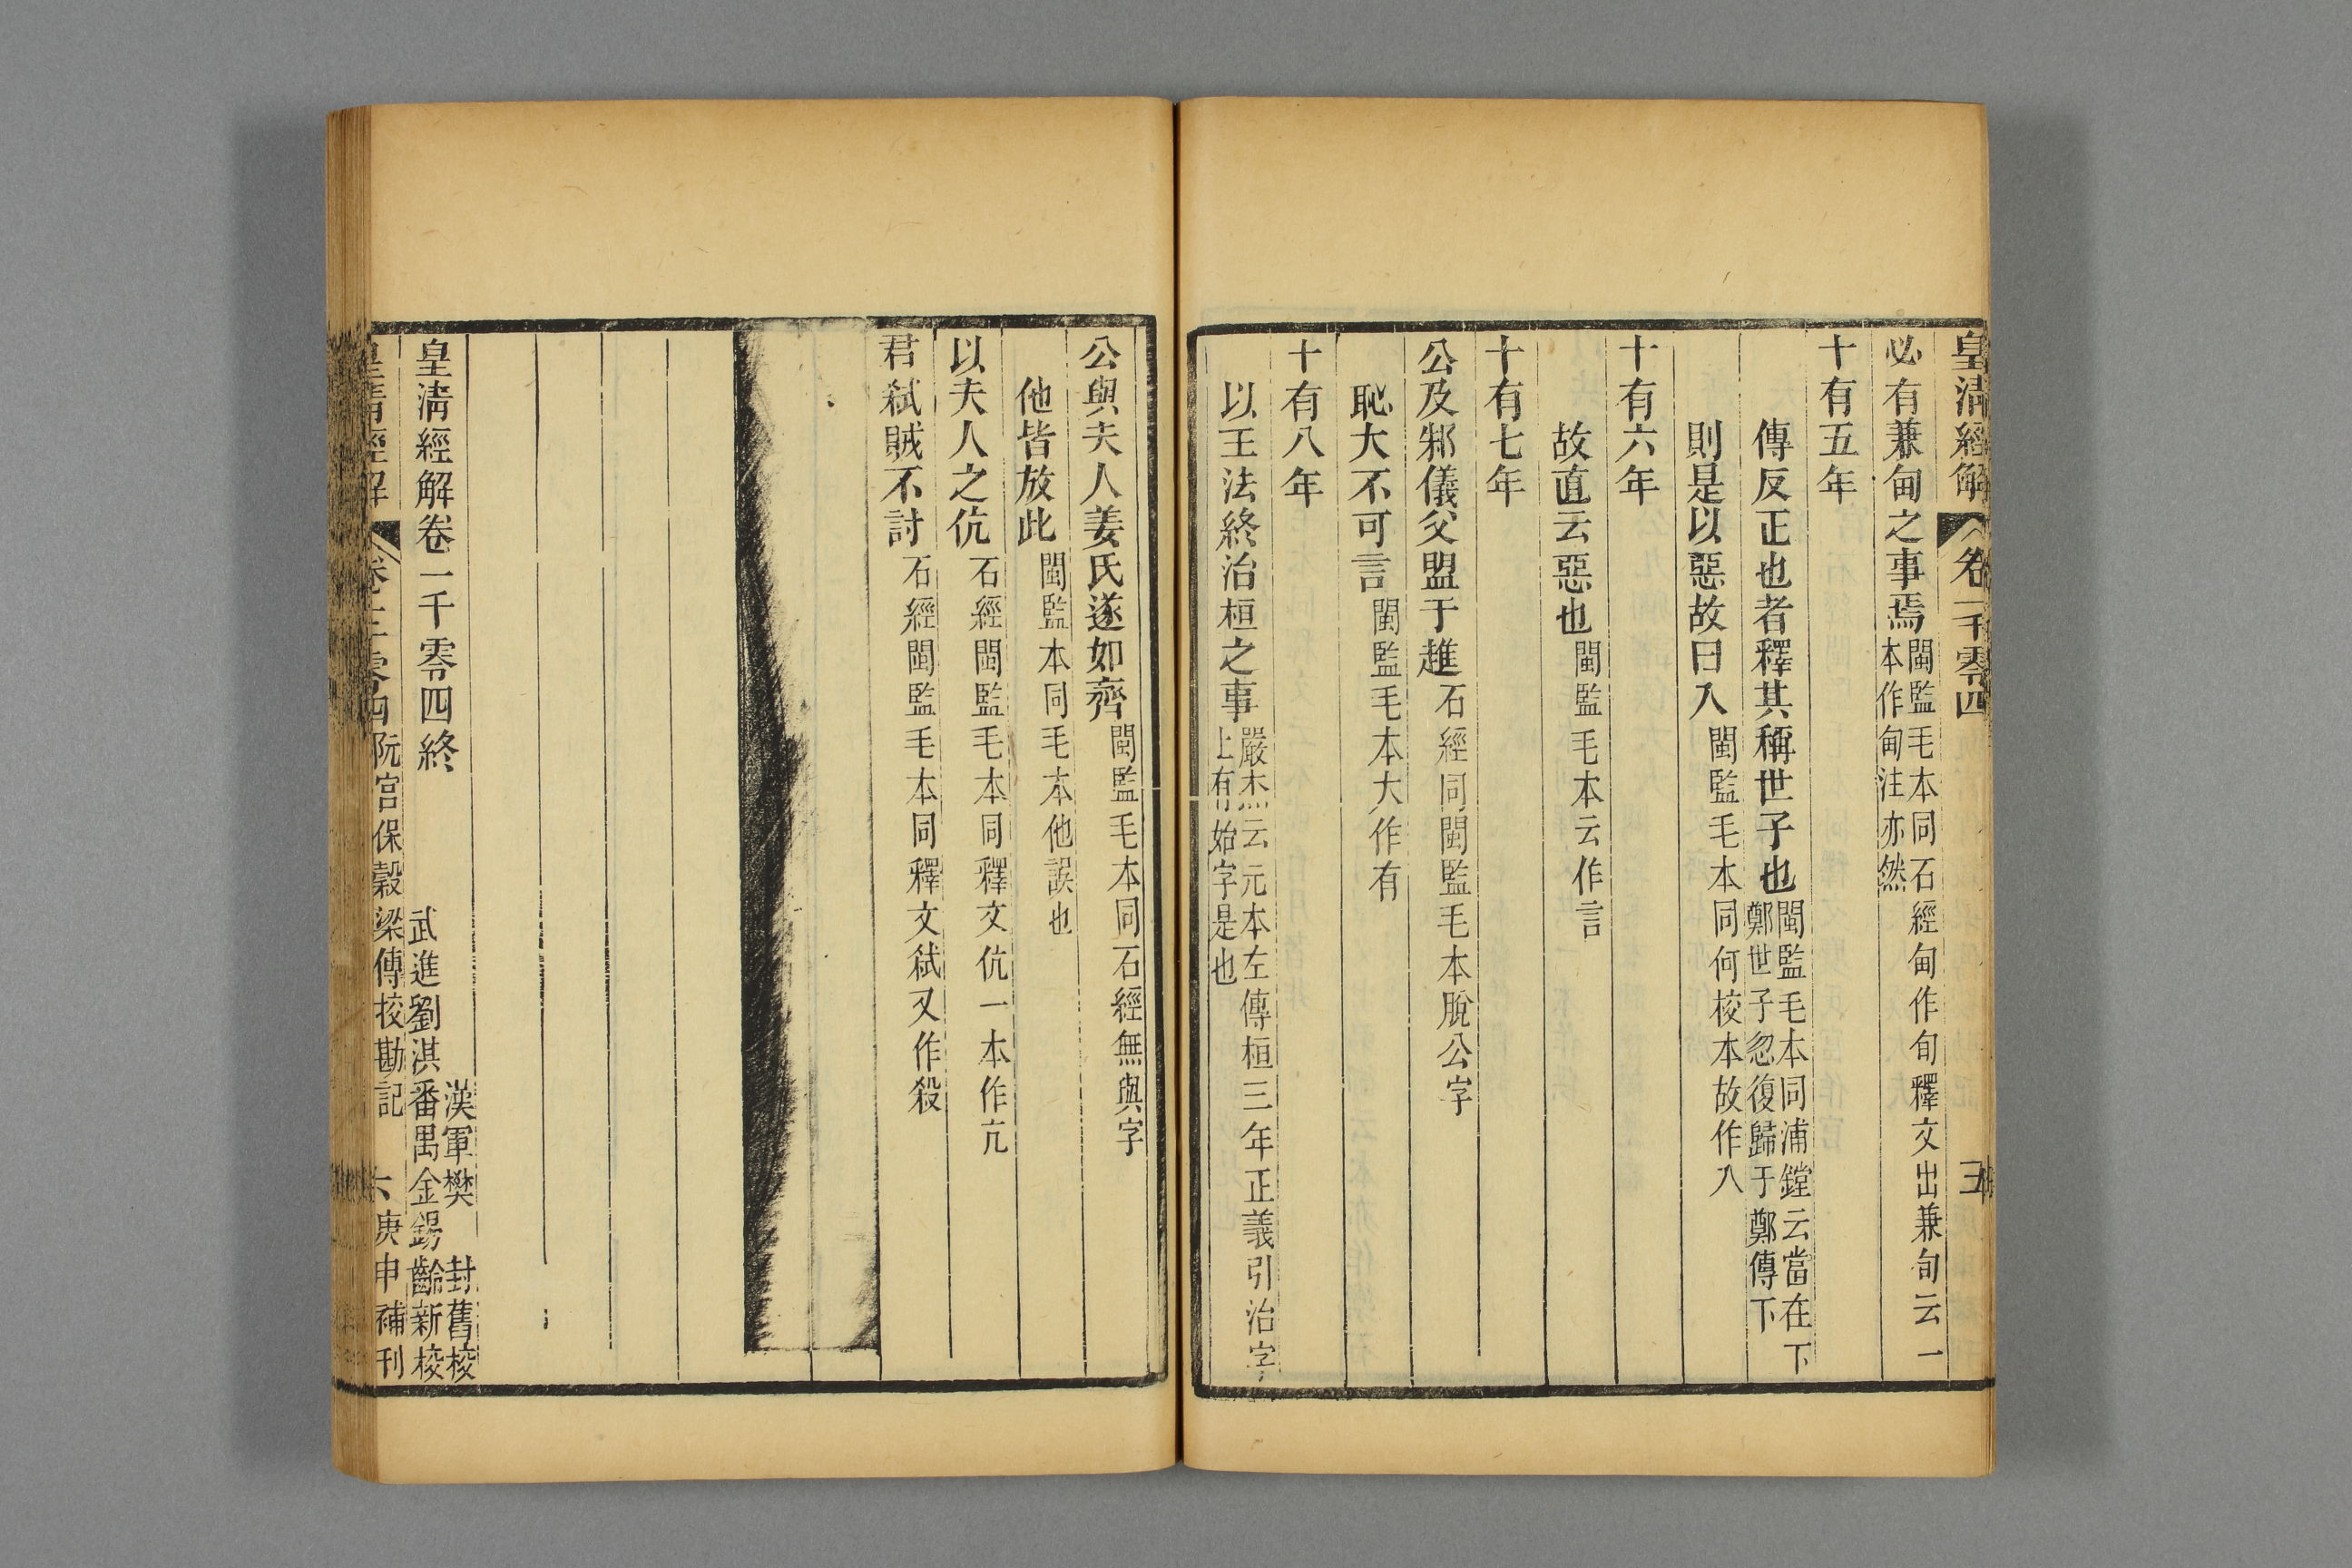 皇清經解 卷一千零四
必有兼甸之事焉閩監毛本同石經甸作旬釋文出兼旬云一本作甸注亦然
十有五年
傳反正也者釋其稱世子也閩監毛本同浦鏜云當在下鄭世子忽復歸于鄭傳下
則是以惡故曰入閩監毛本同何校本故作入
十有六年
故直云惡也閩監毛本云作言
十有七年
公及邾儀父盟于趡石經同閩監毛本脫公字
恥大不可言閩監毛本大作有
十有八年
以王法終治桓之事嚴杰云元本左傳桓三年正義引治字上有始字是也
公與夫人姜氏遂如齊閩監毛本同石經無與字
他皆放此閩監本同毛本他誤也
以夫人之伉石經閩監毛本同釋文伉一本作亢
君弒賊不討石經閩監毛本同釋文弒又作殺
皇清經解卷一千零四終
漢軍樊封舊校
武進劉淇番禺金錫齡新校
皇清經解 卷一千零四 阮宮保穀梁傳校勘記 六 庚申補刊